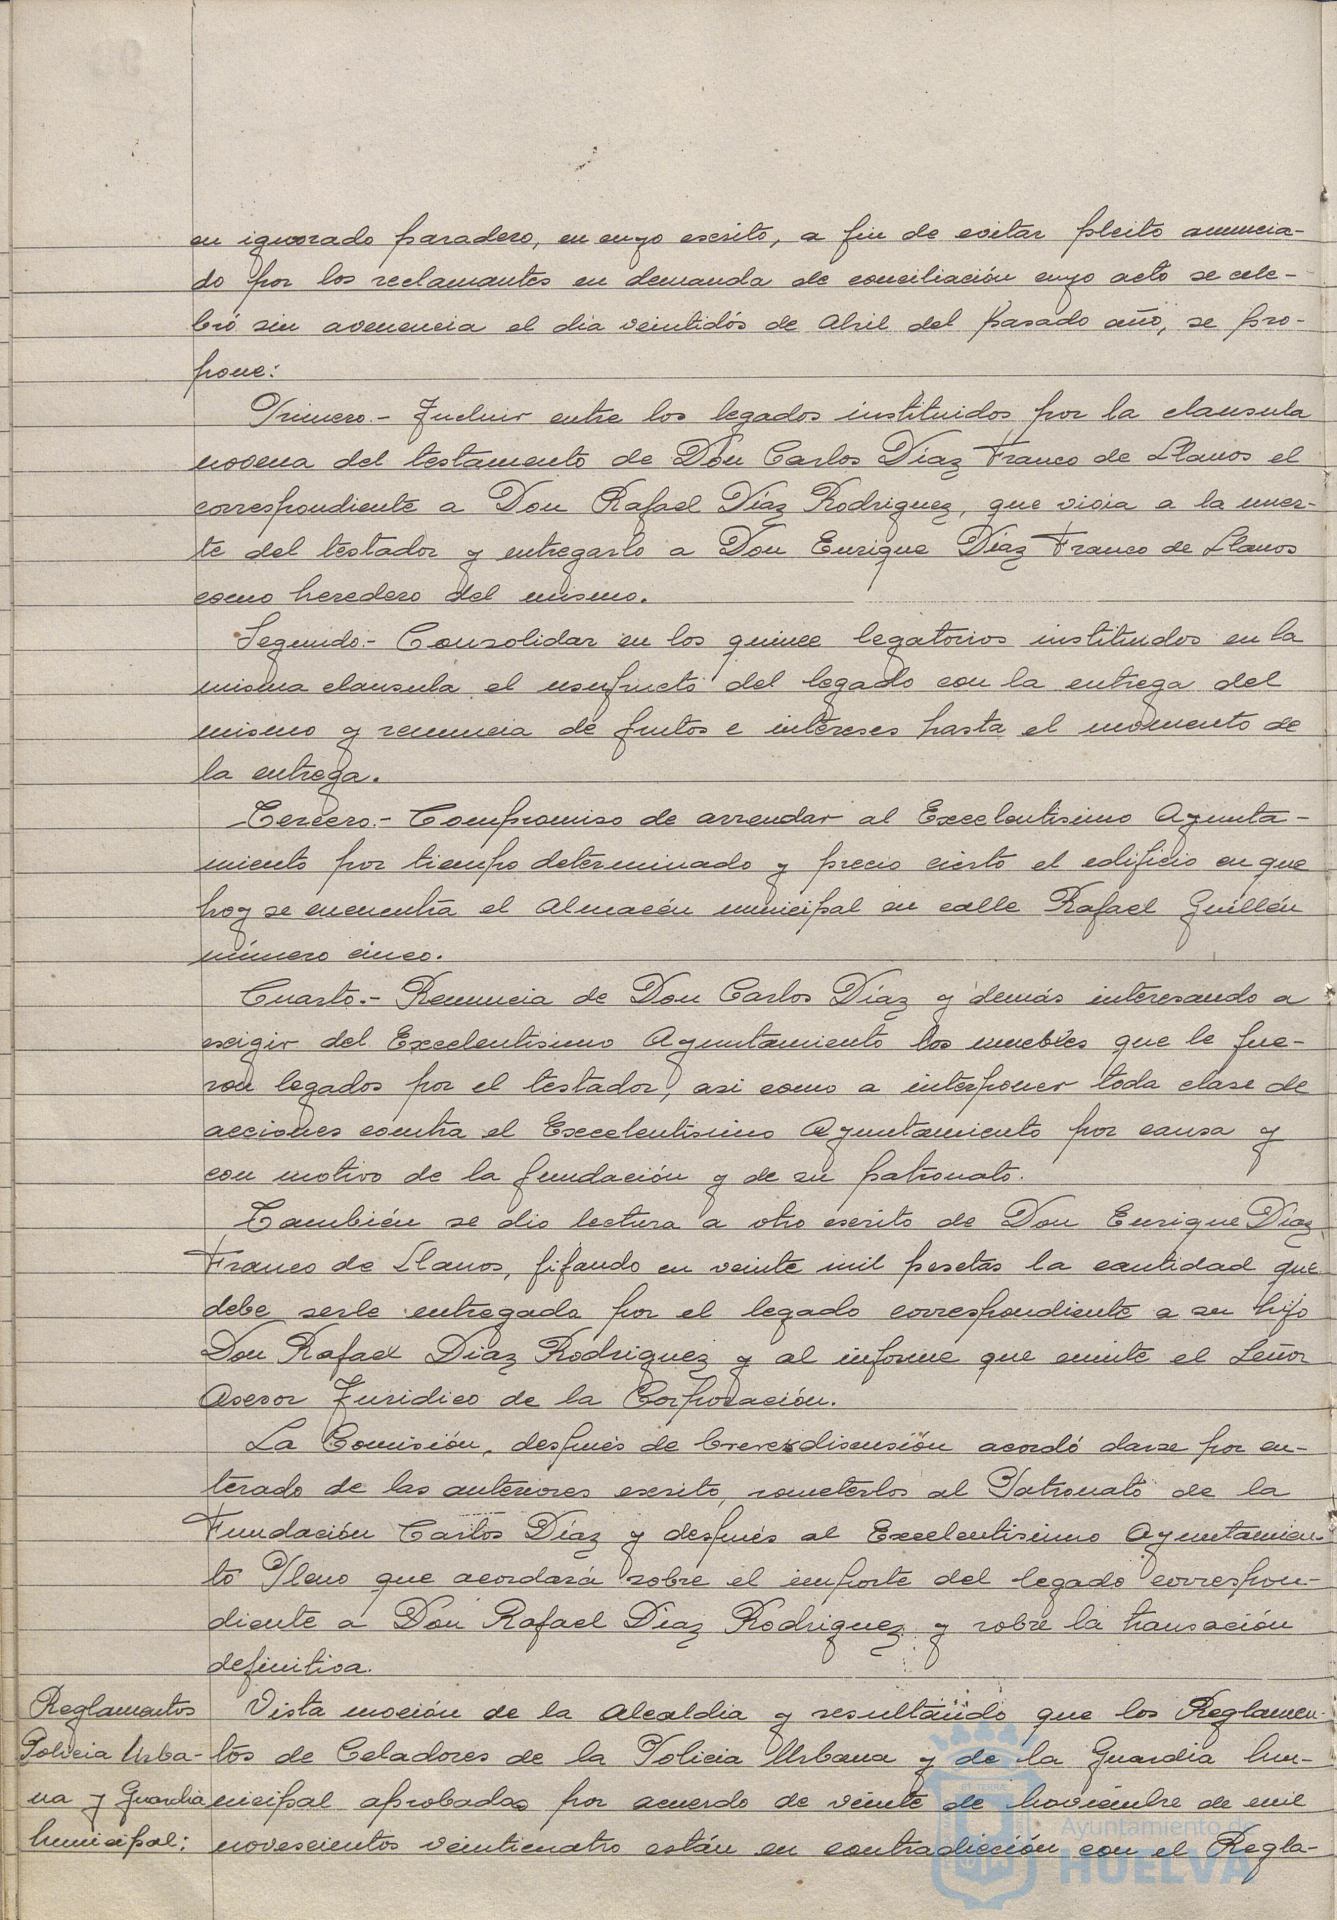 en ignorado paradero, en cuyo escrito, a fin de evitar pleito anuncia-
do por los reclamantes en demanda de conciliación cuyo acto se cele-
bró sin avenencia el dia veintidós de Abril del pasado año, se pro-
pone:
Primero.- Incluir entre los legados instituidos por la clausula
novena del testamento de Don Carlos Díaz Franco de Llanos el
correspondiente a Don Rafael Díaz Rodriguez, que vivia a la muer-
te del testador y entregarlo a Don Enrique Díaz Franco de Llanos
como heredero del mismo.
Segundo.- Consolidar en los quince legatorios instituidos en la
misma clausula el usufructo del legado con la entrega del
mismo y renuncia de frutos e intereses hasta el momento de
la entrega.
Tercero.- Compromiso de arrendar al Excelentisimo Ayunta-
miento por tiempo determinado y precio cierto el edificio en que
hoy se encuentra el Almacén municipal en calle Rafael Guillén
número cinco.
Cuarto.- Renuncia de Don Carlos Díaz y demás interesando a
exigir del Excelentisimo Ayuntamiento los muebles que le fue-
ron legados por el testador, asi como a interponer toda clase de
acciones contra el Excelentisimo Ayuntamiento por causa y
con motivo de la fundación y de su patronato.
También se dio lectura a otro escrito de Don Enrique Díaz
Franco de Llanos, fijando en veinte mil pesetas la cantidad que
debe serle entregada por el legado correspondiente a su hijo
Don Rafael Diaz Rodriguez y al informe que emite el Señor
Asesor Juridico de la Corporación.
La Comisión, después de breve discusión acordó darse por en-
terado de los anteriores escrito, someterlos al Patronato de la
Fundación Carlos Díaz y después al Excelentisimo Ayuntamien-
to Pleno que acordará sobre el importe del legado correspon-
diente a Don Rafael Diaz Rodriguez y sobre la transación
definitiva.
Reglamentos
Policia Urba-
na y Guardia
Municipal:
Vista moción de la Alcaldia y resultando que los Reglamen-
tos de Celadores de la Policia Urbana y de la Guardia Mu-
nicipal aprobadas por acuerdo de veinte de Noviembre de mil
novescientos veinticuatro están en contradicción con el Regla-
Ayuntamiento de
HUELVA